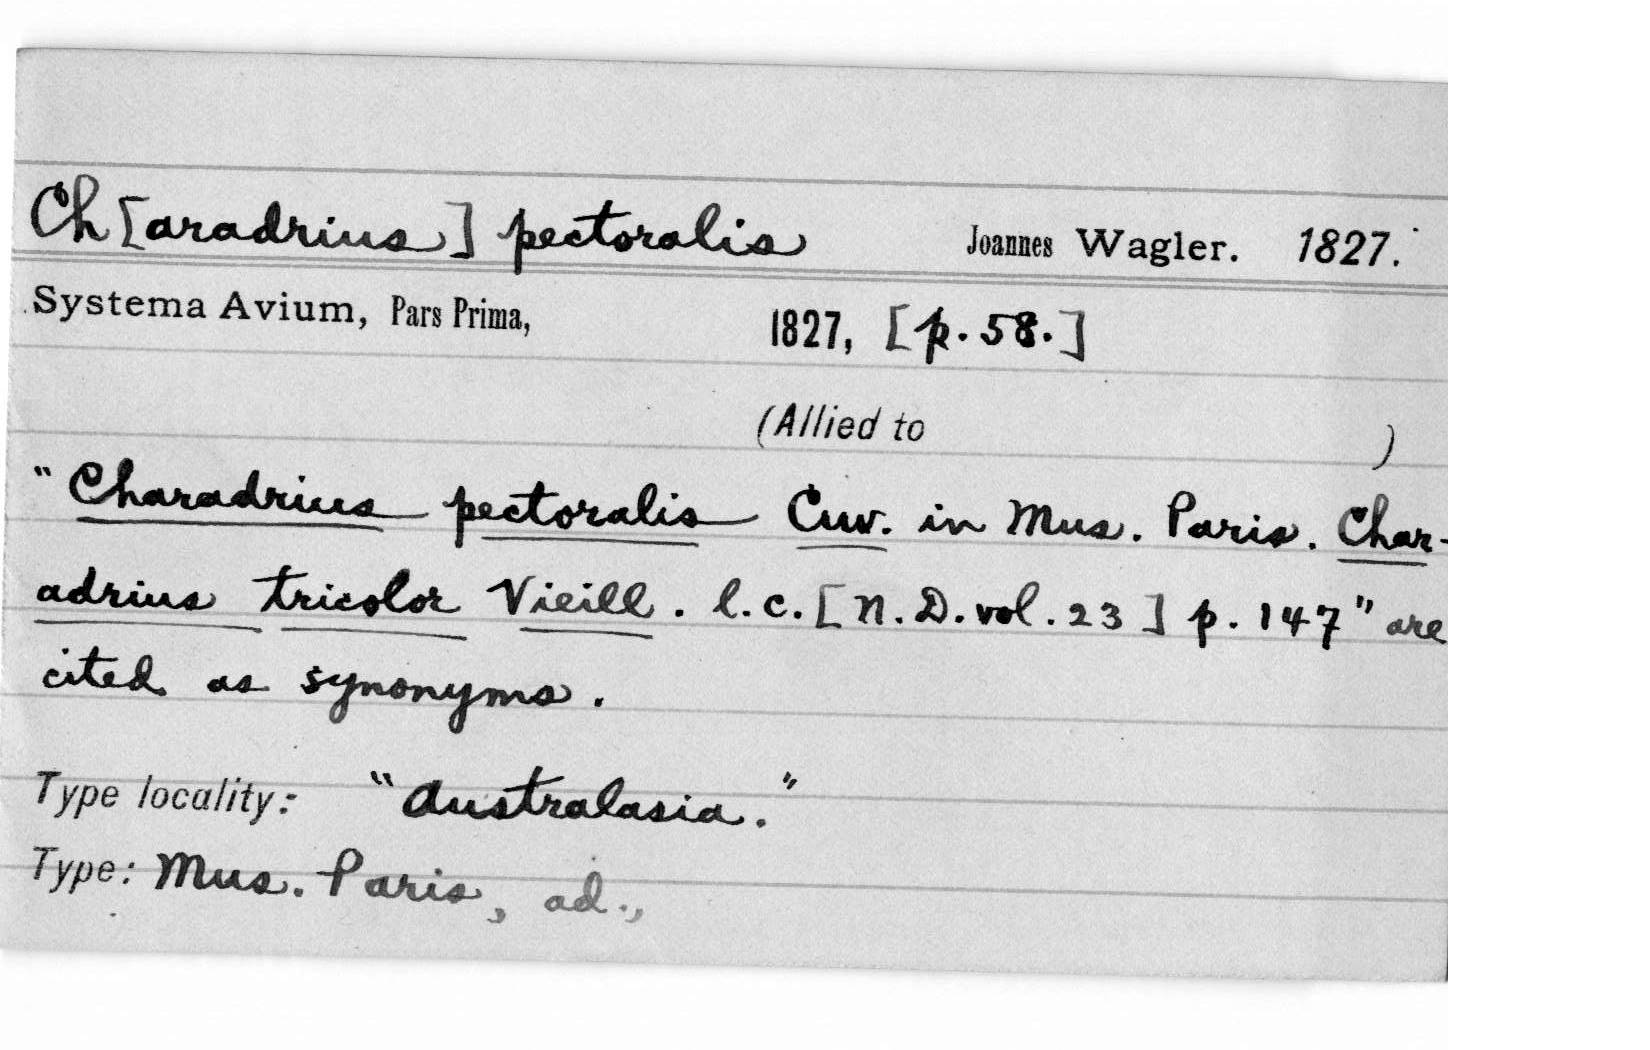 Ch[aradrius] pectoralis Joannes Wagler. 1827.
Systema Avium, Pars Prima, 1827, [p. 58.]
(Allied to )
"Charadrius pectoralis Cuv. in Mus. Paris. Char-
adrius tricolor Vieill. l.c. [N. D. vol. 23] p. 147" are
cited as synonyms.
Type locality: "Australasia."
Type: Mus. Paris, ad.,